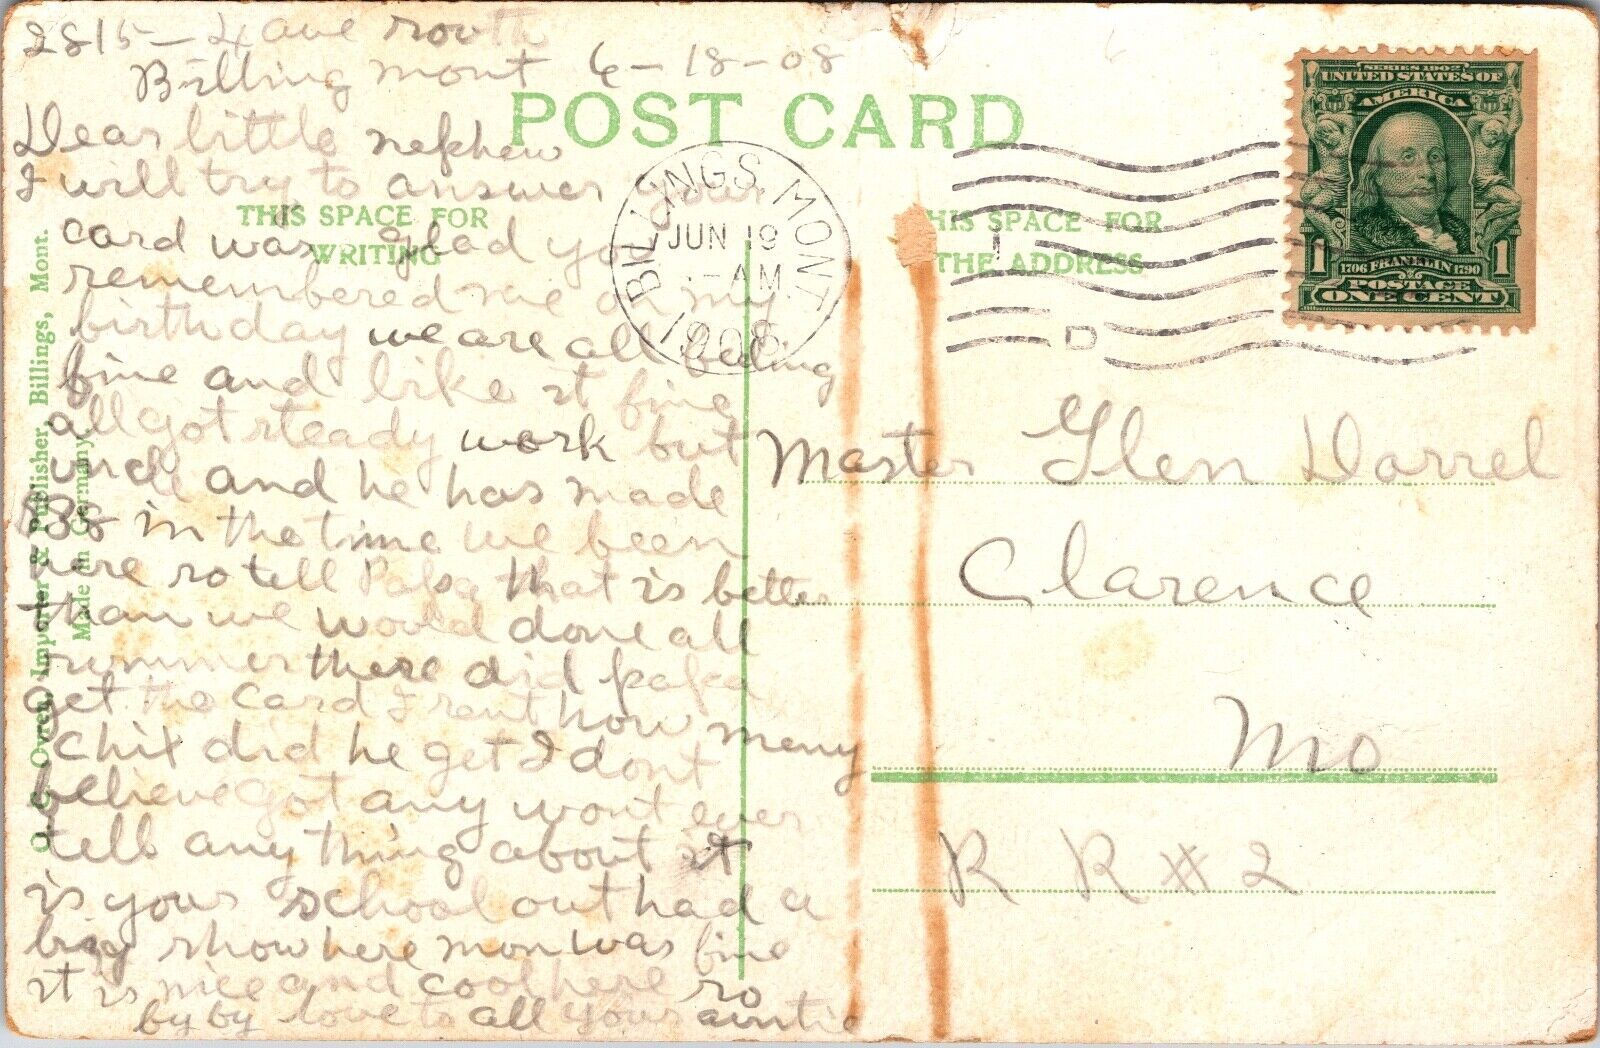 2815 - 4 ave south
Billing mont 6-18-08
Dear little nephew
I will try to answer your
card was glad you
remembered me on my
birthday we are all feeling
fine and like it fine
all got steady work but
uncle and he has made
$38 in the time we been
here so tell Papa that is better
than we would done all
summer there did papa
get the card I sent how meny
chix did he get I dont
believe got any wont ever
tell any thing about it
is your school out had a
big show here mon was fine
it is nice and cool here so
by by love to all your auntie
POST CARD
THIS SPACE FOR
WRITING
THIS SPACE FOR
THE ADDRESS
BILLINGS, MONT.
JUN 19
-AM
1908
D
SERIES 1902
UNITED STATES OF
AMERICA
1 1706 FRANKLIN 1790 1
POSTAGE
ONE CENT
Master Glen Dorrel
Clarence
Mo
R R #2
O. C. Ovren, Importer & Publisher, Billings, Mont.
Made in Germany